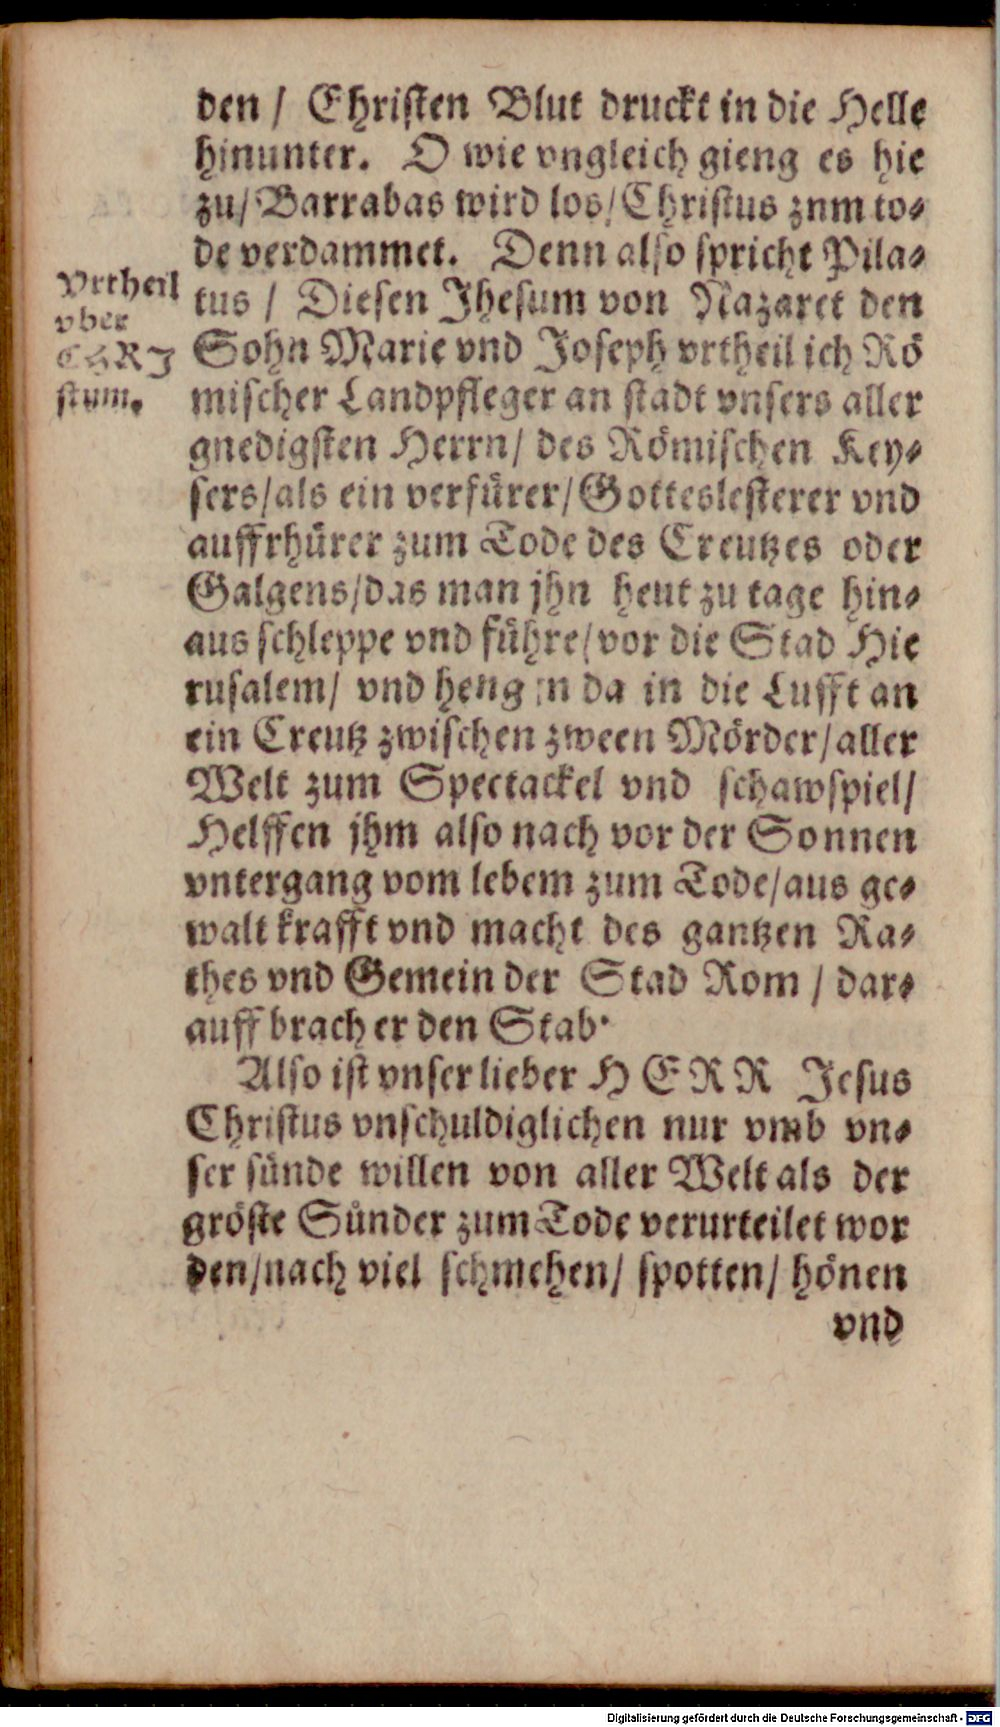 den / Christen Blut druckt in die Helle
hinunter. O wie vngleich gieng es hie
zu/ Barrabas wird los/ Christus znm to-
de verdammet. Denn also spricht Pila-
tus / Diesen Jhesum von Nazaret den
Sohn Marie vnd Joseph vrtheil ich Rö
mischer Landpfleger an stadt vnsers aller
gnedigsten Herrn/ des Römischen Key-
sers/als ein verfürer/Gotteslesterer vnd
auffrhürer zum Tode des Creutzes oder
Galgens/das man jhn heut zu tage hin-
aus schleppe vnd führe/vor die Stad Hie
rusalem/ vnd heng jn da in die Lufft an
ein Creutz zwischen zween Mörder/aller
Welt zum Spectackel vnd schawspiel/
Helffen jhm also nach vor der Sonnen
vntergang vom lebem zum Tode/aus ge-
walt krafft vnd macht des gantzen Ra-
thes vnd Gemein der Stad Rom / dar-
auff brach er den Stab.
Also ist vnser lieber HERR Jesus
Christus vnschuldiglichen nur vmb vn-
ser sünde willen von aller Welt als der
gröste Sünder zum Tode verurteilet wor
den/nach viel schmehen/ spotten/ hönen
vnd
Vrtheil
vber
CHRJ
stum.
Digitalisierung gefördert durch die Deutsche Forschungsgemeinschaft - DFG